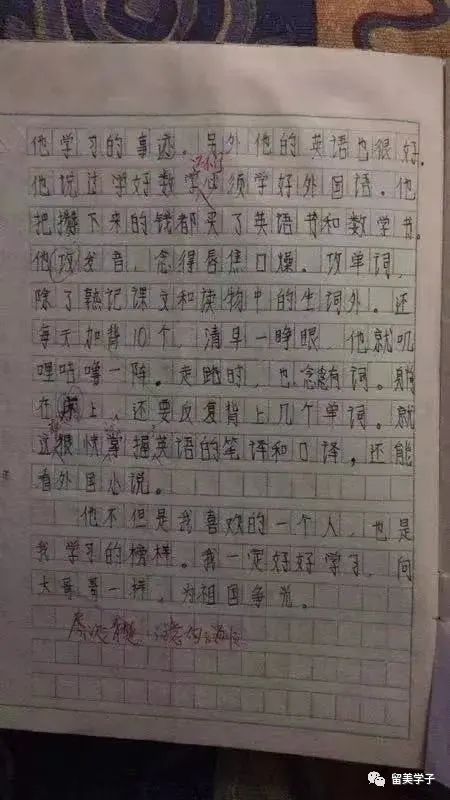 他学习的事迹。另外他的英语也很好。
他说过学好数学必须学好外国语。他
把攒下来的钱都买了英语书和数学书。
他攻发音，念得唇焦口燥。攻单词，
除了熟记课文和读物中的生词外。还
每天加背10个，清早一睁眼，他就叽
哩咕噜一阵。走路时，也念念有词。躺
在床上，还要反复背上几个单词。就
这很快掌握英语的笔译和口译，还能
看外国小说。
他不但是我喜欢的一个人，也是
我学习的榜样。我一定好好学习，向
大哥哥一样，为祖国争光。
留美学子